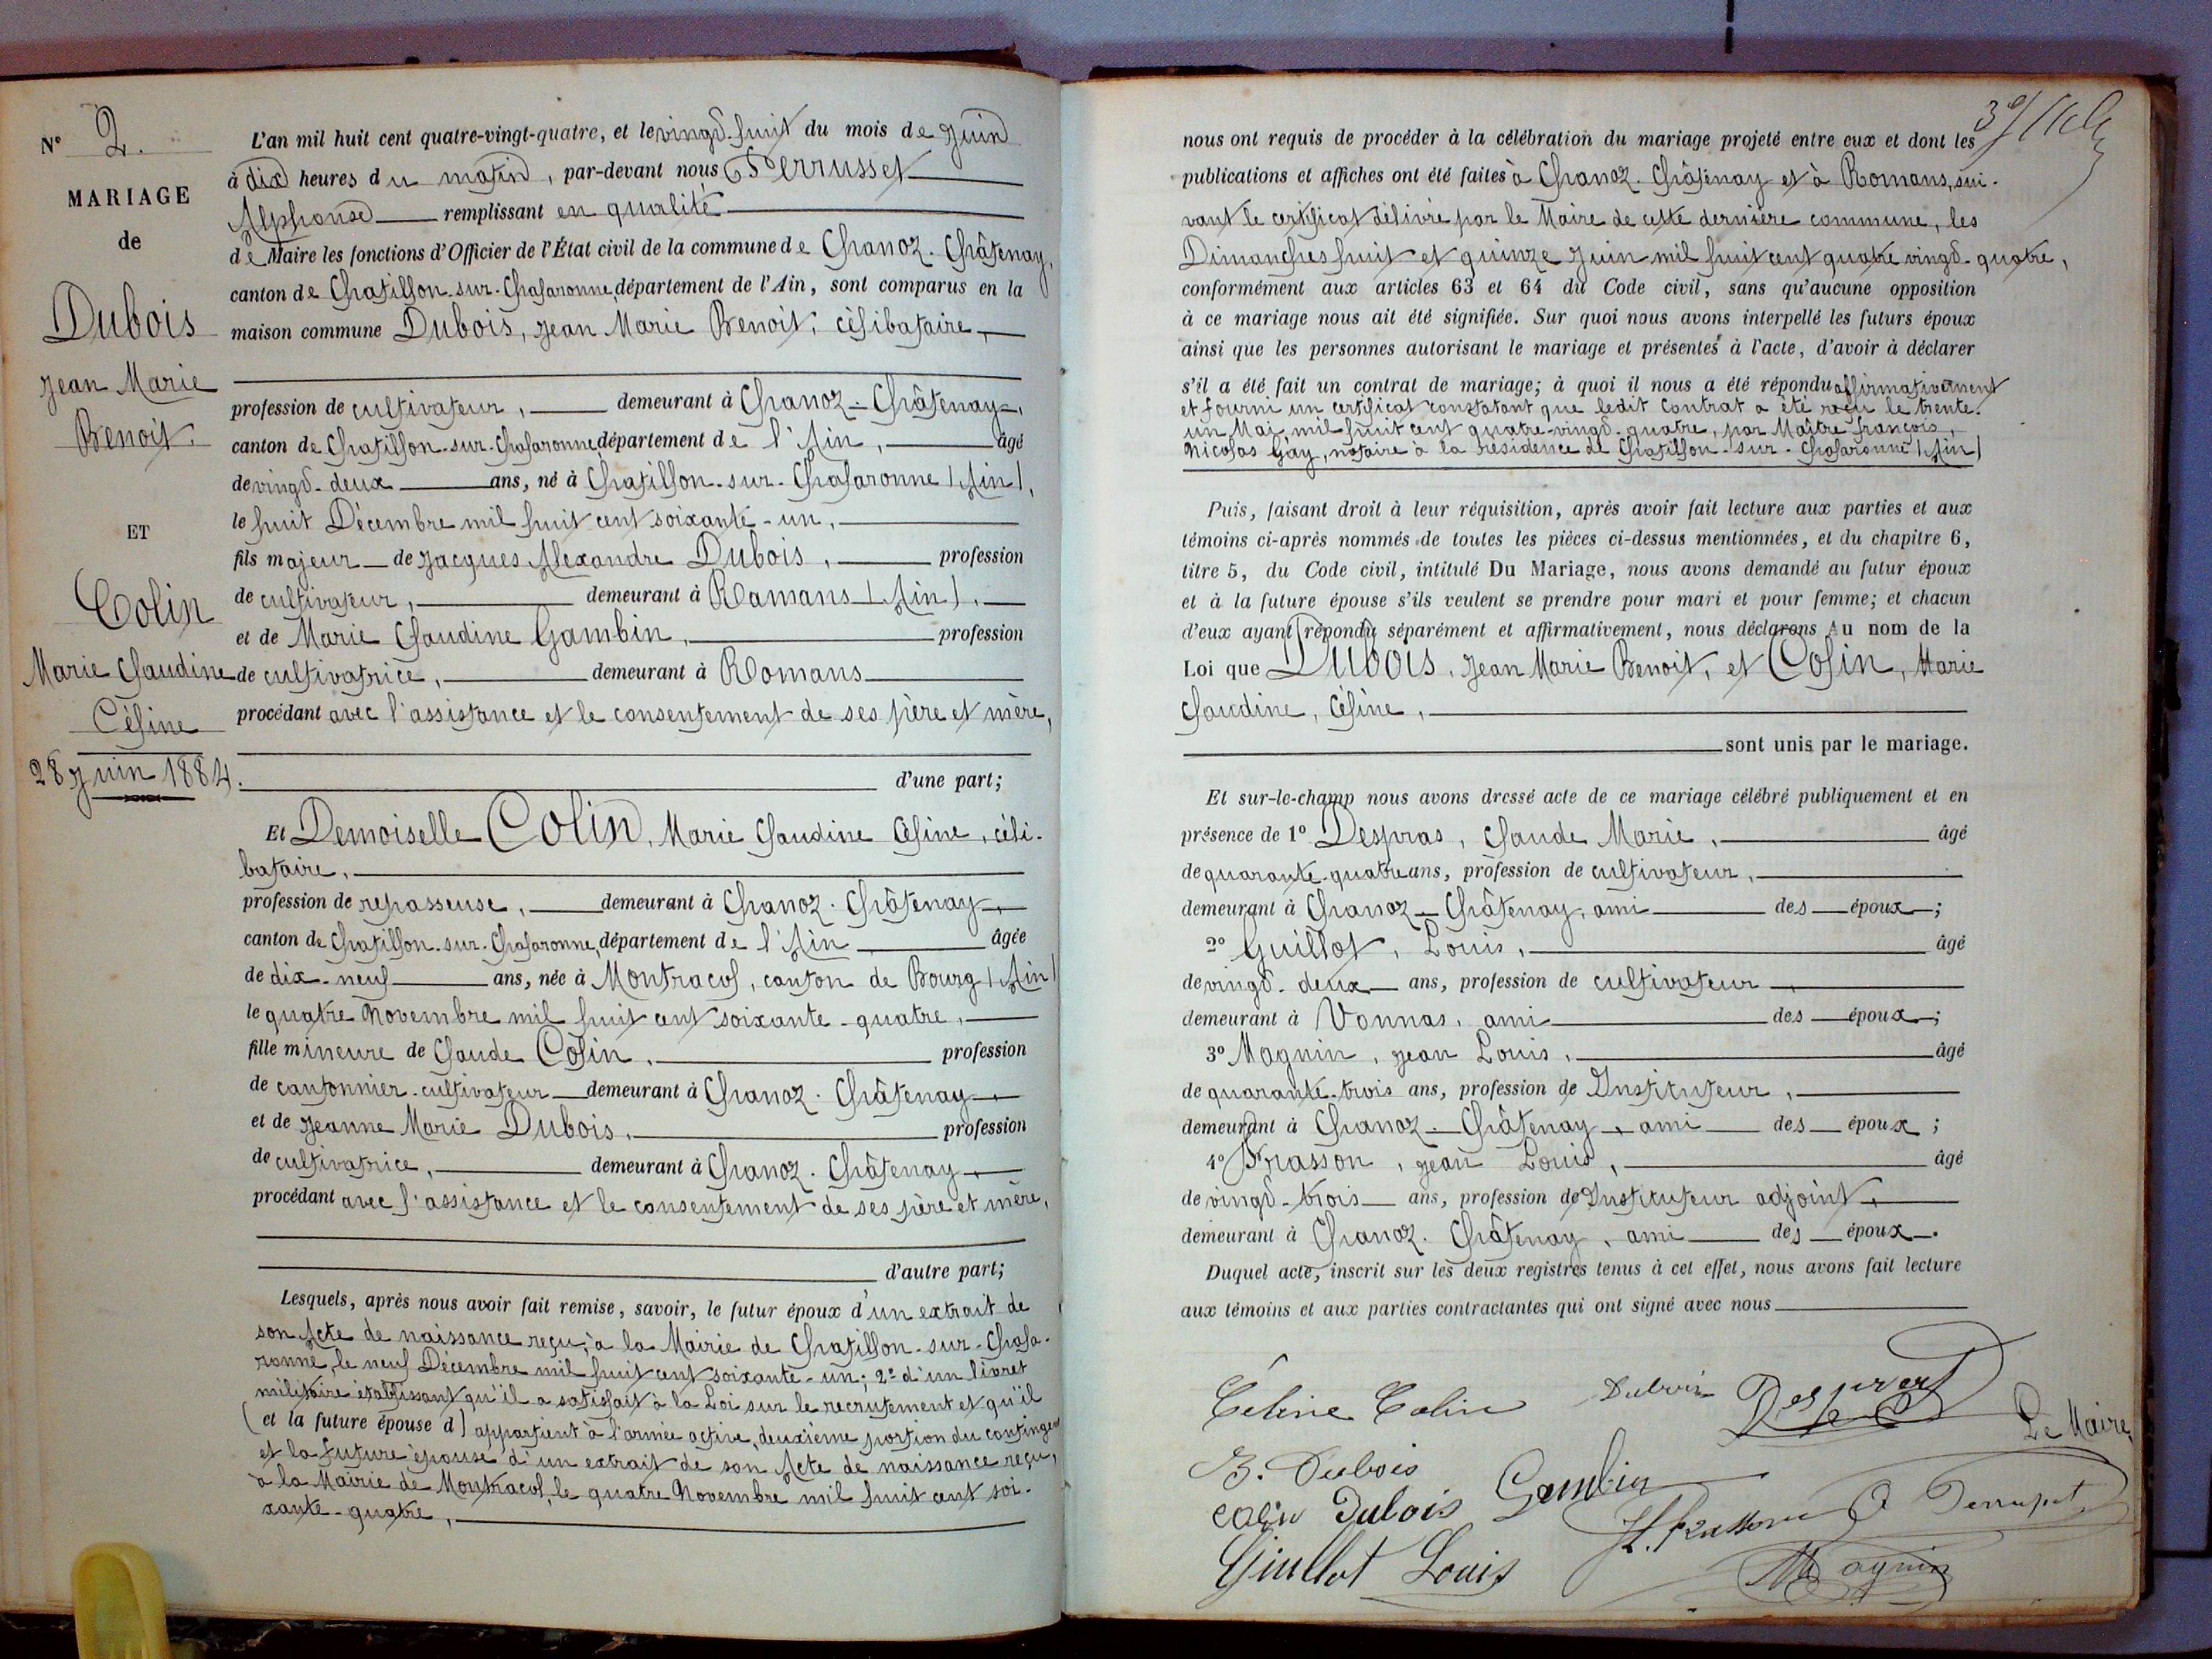 N° 2.
MARIAGE
de
Dubois
Jean Marie
Benoit.
ET
Colin
Marie Claudine
Céline
28 Juin 1884.
L'an mil huit cent quatre-vingt-quatre, et le vingt-huit du mois de Juin
à dix heures du matin, par-devant nous Perrusset
Alphonse remplissant en qualité
de Maire les fonctions d'Officier de l'État civil de la commune de Chanoz-Châtenay,
canton de Chatillon-sur-Chalaronne, département de l'Ain, sont comparus en la
maison commune Dubois, Jean Marie Benoit, célibataire,
profession de cultivateur, demeurant à Chanoz-Châtenay,
canton de Chatillon-sur-Chalaronne, département de l'Ain, âgé
de vingt-deux ans, né à Chatillon-sur-Chalaronne (Ain),
le huit Décembre mil huit cent soixante-un,
fils majeur de Jacques Alexandre Dubois, profession
de cultivateur, demeurant à Romans (Ain),
et de Marie Claudine Gambin, profession
de cultivatrice, demeurant à Romans
procédant avec l'assistance et le consentement de ses père et mère,
d'une part;
Et Demoiselle Colin, Marie Claudine Céline, céli-
bataire,
profession de repasseuse, demeurant à Chanoz-Châtenay,
canton de Chatillon-sur-Chalaronne, département de l'Ain âgée
de dix-neuf ans, née à Montracol, canton de Bourg (Ain)
le quatre Novembre mil huit cent soixante-quatre,
fille mineure de Claude Colin, profession
de cantonnier-cultivateur demeurant à Chanoz-Châtenay,
et de Jeanne Marie Dubois, profession
de cultivatrice, demeurant à Chanoz-Châtenay,
procédant avec l'assistance et le consentement de ses père et mère,
d'autre part;
Lesquels, après nous avoir fait remise, savoir, le futur époux d'un extrait de
son Acte de naissance reçu, à la Mairie de Chatillon-sur-Chala-
ronne, le neuf Décembre mil huit cent soixante-un; 2° d'un livret
militaire établissant qu'il a satisfait à la Loi sur le recrutement et qu'il
(et la future épouse d) appartient à l'armée active, deuxième portion du contingent
et la future épouse d'un extrait de son Acte de naissance reçu,
à la Mairie de Montracol, le quatre Novembre mil huit cent soi-
xante-quatre,
nous ont requis de procéder à la célébration du mariage projeté entre eux et dont les
publications et affiches ont été faites à Chanoz-Châtenay et à Romans, sui-
vant le certificat délivré par le Maire de cette dernière commune, les
Dimanches huit et quinze Juin mil huit cent quatre vingt-quatre,
conformément aux articles 63 et 64 du Code civil, sans qu'aucune opposition
à ce mariage nous ait été signifiée. Sur quoi nous avons interpellé les futurs époux
ainsi que les personnes autorisant le mariage et présentes à l'acte, d'avoir à déclarer
s'il a été fait un contrat de mariage; à quoi il nous a été répondu affirmativement
et fourni un certificat constatant que ledit Contrat a été reçu le trente-
un Mai mil huit cent quatre-vingt-quatre, par Maître François,
Nicolas Gay, notaire à la résidence de Chatillon-sur-Chalaronne (Ain)
Puis, faisant droit à leur réquisition, après avoir fait lecture aux parties et aux
témoins ci-après nommés de toutes les pièces ci-dessus mentionnées, et du chapitre 6,
titre 5, du Code civil, intitulé Du Mariage, nous avons demandé au futur époux
et à la future épouse s'ils veulent se prendre pour mari et pour femme; et chacun
d'eux ayant répondu séparément et affirmativement, nous déclarons Au nom de la
Loi que Dubois, Jean Marie Benoit, et Colin, Marie
Claudine, Céline,
sont unis par le mariage.
Et sur-le-champ nous avons dressé acte de ce mariage célébré publiquement et en
présence de 1° Despras, Claude Marie, âgé
de quarante-quatre ans, profession de cultivateur,
demeurant à Chanoz-Châtenay, ami des époux;
2° Guillot, Louis, âgé
de vingt-deux ans, profession de cultivateur,
demeurant à Vonnas, ami des époux;
3° Magnin, Jean Louis, âgé
de quarante-trois ans, profession de Instituteur,
demeurant à Chanoz-Châtenay, ami des époux;
4° Frasson, Jean Louis, âgé
de vingt-trois ans, profession de Instituteur adjoint,
demeurant à Chanoz-Châtenay, ami des époux.
Duquel acte, inscrit sur les deux registres tenus à cet effet, nous avons fait lecture
aux témoins et aux parties contractantes qui ont signé avec nous
Céline Colin Dubois Despras
Le Maire,
B. Dubois Gambin
Colin Dubois
Guillot Louis Magnin